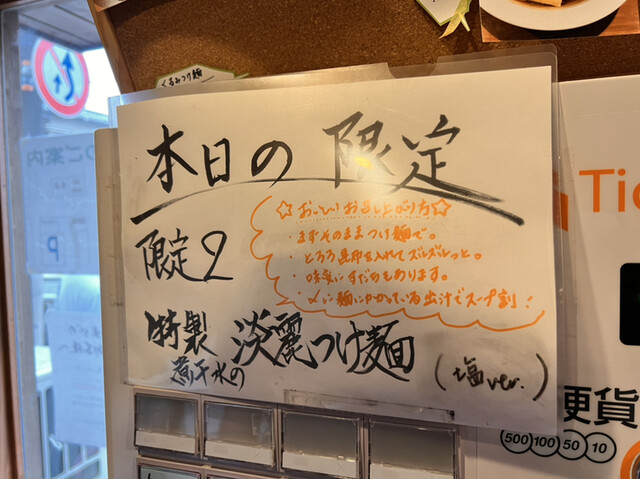 くるみつけ麺
本日の限定
限定2
☆おいしいお召し上がり方☆
・まずそのままつけ麺で。
・とろろ昆布を入れてズルズルっと。
・味変にすだちもあります。
・〆に麺にかかっている出汁でスープ割!
特製
煮干水の
淡麗つけ麺
(塩ver.)
Tic
硬貨
500 100 50 10
ご案内
P